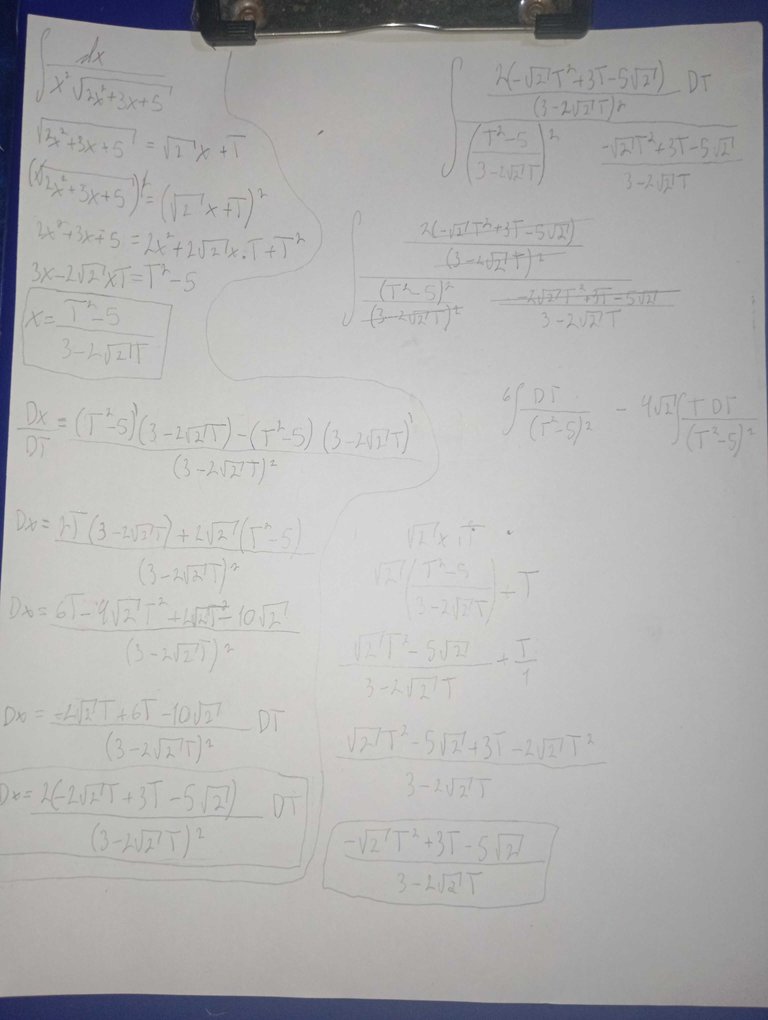 ∫ dx / (x² √(2x²+3x+5))
√(2x²+3x+5) = √2 x + T
(√(2x²+3x+5))² = (√2 x + T)²
2x²+3x+5 = 2x²+2√2 x.T+T²
3x-2√2 xT = T²-5
x = (T²-5) / (3-2√2T)
Dx/DT = ((T²-5)'(3-2√2T) - (T²-5)(3-2√2T)') / (3-2√2T)²
Dx = (2T(3-2√2T)+2√2(T²-5)) / (3-2√2T)²
Dx = (6T-4√2T²+2√2T²-10√2) / (3-2√2T)²
Dx = (-2√2T+6T-10√2) / (3-2√2T)² DT
Dx = 2(-2√2T+3T-5√2) / (3-2√2T)² DT
∫ [2(-√2T²+3T-5√2) / (3-2√2T)² DT] / [((T²-5) / (3-2√2T))² (-√2T²+3T-5√2) / (3-2√2T)]
∫ [2(-√2T²+3T-5√2) / (3-2√2T)²] / [(T²-5)² / (3-2√2T)² (-2√2T²+3T-5√2) / (3-2√2T)]
6∫ DT / (T²-5)² - 4√2 ∫ T DT / (T²-5)²
√2 x + T
√2 ((T²-5) / (3-2√2T)) + T
(√2T²-5√2) / (3-2√2T) + T/1
(√2T²-5√2+3T-2√2T²) / (3-2√2T)
(-√2T²+3T-5√2) / (3-2√2T)